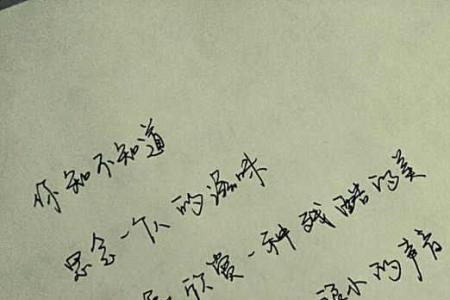 你知不知道
思念一个人的滋味
欣赏一种残酷的美
小的声音